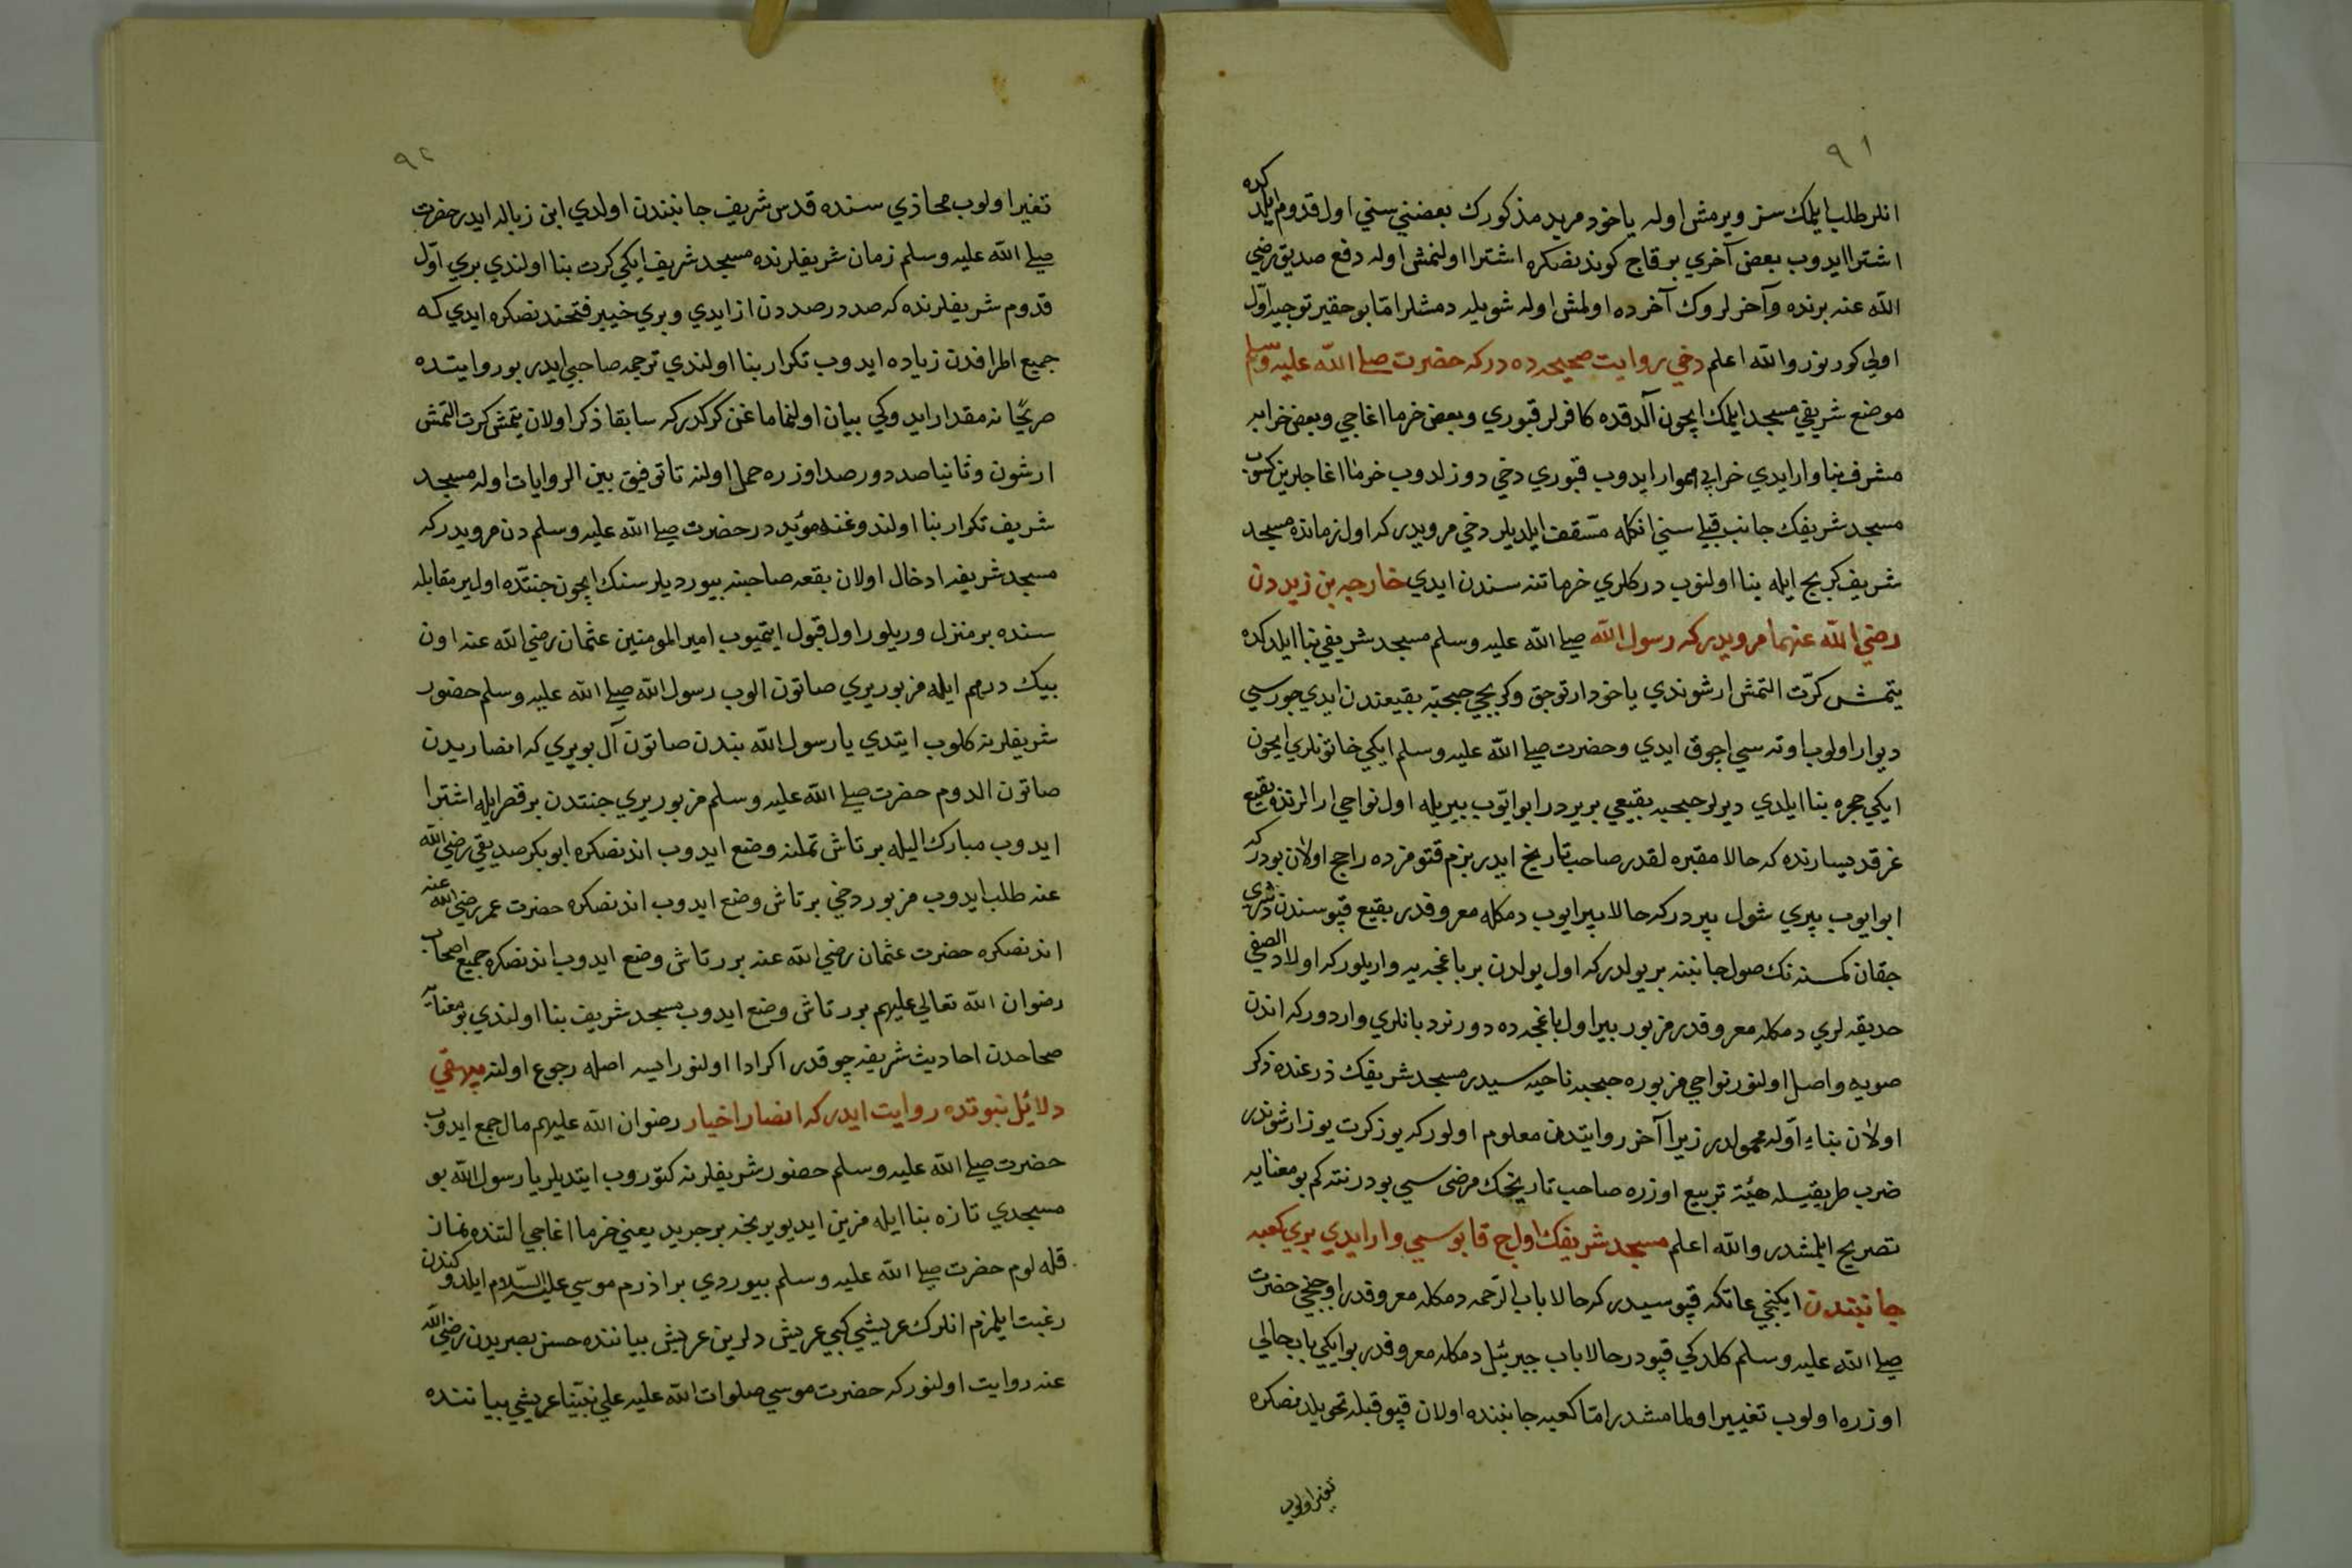 ٩١
انلر طلب ايلمك سز ويرمش اوله ياخود مربد مذكورك بعضني سني اول قدوم ايلدكده
اشترا ايدوب بعض آخري برقاج كوندنصكره اشترا اولنمش اوله دفع صديق رضي
الله عنه برنده وآخرلروك آخرده اولمش اوله شويله دمشلر امّا بو حقير توجيه اوّل
اولي كورنور والله اعلم دخي روايت صحيحه ده در كه حضرت صلى الله عليه وسلم
موضع شريفي مسجد ايلمك ايچون آلدقده كافرلر قبوري وبعض خرما اغاجي وبعض خرابه
مشرف بنا وار ايدي خرابه يي هموار ايدوب قبوري دخي دوزلدوب خرما اغاجلرين كسوب
مسجد شريفك جانب قبلي سني انكله مسقف ايلديلر دخي مرويدر كه اول زمانده مسجد
شريف كربج ايله بنا اولنوب دركلري خرما تنه سندن ايدي خارجه بن زيد دن
رضي الله عنهما مرويدر كه رسول الله صلى الله عليه وسلم مسجد شريفي بنا ايلدكده
يتمش كرّت التمش ارشوندي ياخود ارتوجق وكربجي جبجبة بقيعندن ايدي جورسي
ديوار اولوب اوته سي اچوق ايدي وحضرت صلى الله عليه وسلم ايكي خاتونلري ايچون
ايكي حجره بنا ايلدي ديرلر جبجبه بقيعي بر يردر ابو ايّوب بيريله اول نواحي ارالرنده بقيع
غرقد يسارنده كه حالا مقبره لقدر صاحب تاريخ ايدر بزم قتومزده راجح اولان بودر كه
ابو ايوب بيري شول بيردر كه حالا بير ايوب دمكله معروفدر بقيع قپوسندن طشري
جقان كمسنه نك صول جانبنه بر يولدر كه اول يولدن بر باغچه يه واريلور كه اولاد الصفي
حديقه لري دمكله معروفدر مزبور بير اول باغچه ده دور نردبانلري واردور كه اندن
صويه واصل اولنور نواحي مزبوره جبجبه ناحيه سيدر مسجد شريفك ذرعنده ذكر
اولان بناءِ اوّله محمولدر زيرا آخر روايتدن معلوم اولور كه يوز كرت يوز ارشوندر
ضرب طريقيسله هيئة تربيع اوزره صاحب تاريخك مرضي سي بودر نته كم بو معنايه
تصريح ايلمشدر والله اعلم مسجد شريفك اوج قاپوسي وار ايدي بري كعبه
جانبندن ايكنجي عاتكه قپوسيدر كه حالا باب الرّحمه دمكله معروفدر اوچنجي حضرت
صلى الله عليه وسلم كلدكي قپودر حالا باب جبرئيل دمكله معروفدر بو ايكي باب حالي
اوزره اولوب تغيير اولمامشدر امّا كعبه جانبنده اولان قپو قبله تحويلدنصكره
تغير اولوب
٩٢
تغير اولوب محاذي سنده قدس شريف جانبندن اولدي ابن زباله ايدر حضرت
صلى الله عليه وسلم زمان شريفلرنده مسجد شريف ايكي كرت بنا اولندي بري اوّل
قدوم شريفلرنده كه صد در صد دن از ايدي وبري خيبر فتحندنصكره ايدي كه
جميع اطرافدن زياده ايدوب تكرار بنا اولندي ترجمه صاحبي ايدر بو روايتده
صريحًا نه مقدار ايدوكي بيان اولنماماغن كركدر كه سابقا ذكر اولان يتمش كرت التمش
ارشون وثانيا صد دور صد اوزره حمل اولنه تا توفيق بين الروايات اوله مسجد
شريف تكرار بنا اولندوغنه مؤيد در حضرت صلى الله عليه وسلم دن مرويدر كه
مسجد شريفه ادخال اولان بقعه صاحبنه بيورديلر سنك ايچون جنتده اول ير مقابله
سنده بر منزل وريلور اول قبول ايتميوب امير المومنين عثمان رضي الله عنه اون
بيك درهم ايله مزبور يري صاتون الوب رسول الله صلى الله عليه وسلم حضور
شريفلرينه كلوب ايتدي يا رسول الله بندن صاتون آل بو يري كه انصاريدن
صاتون الدوم حضرت صلى الله عليه وسلم مزبور يري جنتدن بر قصر ايله اشترا
ايدوب مبارك اليله بر تاش تملنه وضع ايدوب اندنصكره ابوبكر صديقي رضي الله
عنه طلب ايدوب مزبور دخي بر تاش وضع ايدوب اندنصكره حضرت عمر رضي الله عنه
اندنصكره حضرت عثمان رضي الله عنه برر تاش وضع ايدوب اندنصكره جميع اصحاب
رضوان الله تعالي عليهم برر تاش وضع ايدوب مسجد شريف بنا اولندي بو معنايه
صحاحدن احاديث شريفه چوقدر اكر ادا اولنور ايسه اصله رجوع اولنه بيهقي
دلائل نبوتده روايت ايدر كه انصار اخيار رضوان الله عليهم مال جمع ايدوب
حضرت صلى الله عليه وسلم حضور شريفلرينه كتوروب ايتديلر يا رسول الله بو
مسجدي تازه بنا ايله مزين ايديوير نجه بر جريد يعني خرما اغاجي التنده نماز
قله لوم حضرت صلى الله عليه وسلم بيوردي برادرم موسي عليه السّلام ايلدوكندن
رغبت ايلمزم انلرك عريشي كبي عريش دلرين عريش بياننده حسن بصريدن رضي الله
عنه روايت اولنور كه حضرت موسي صلوات الله عليه علي نبيّنا عريشي بياننده